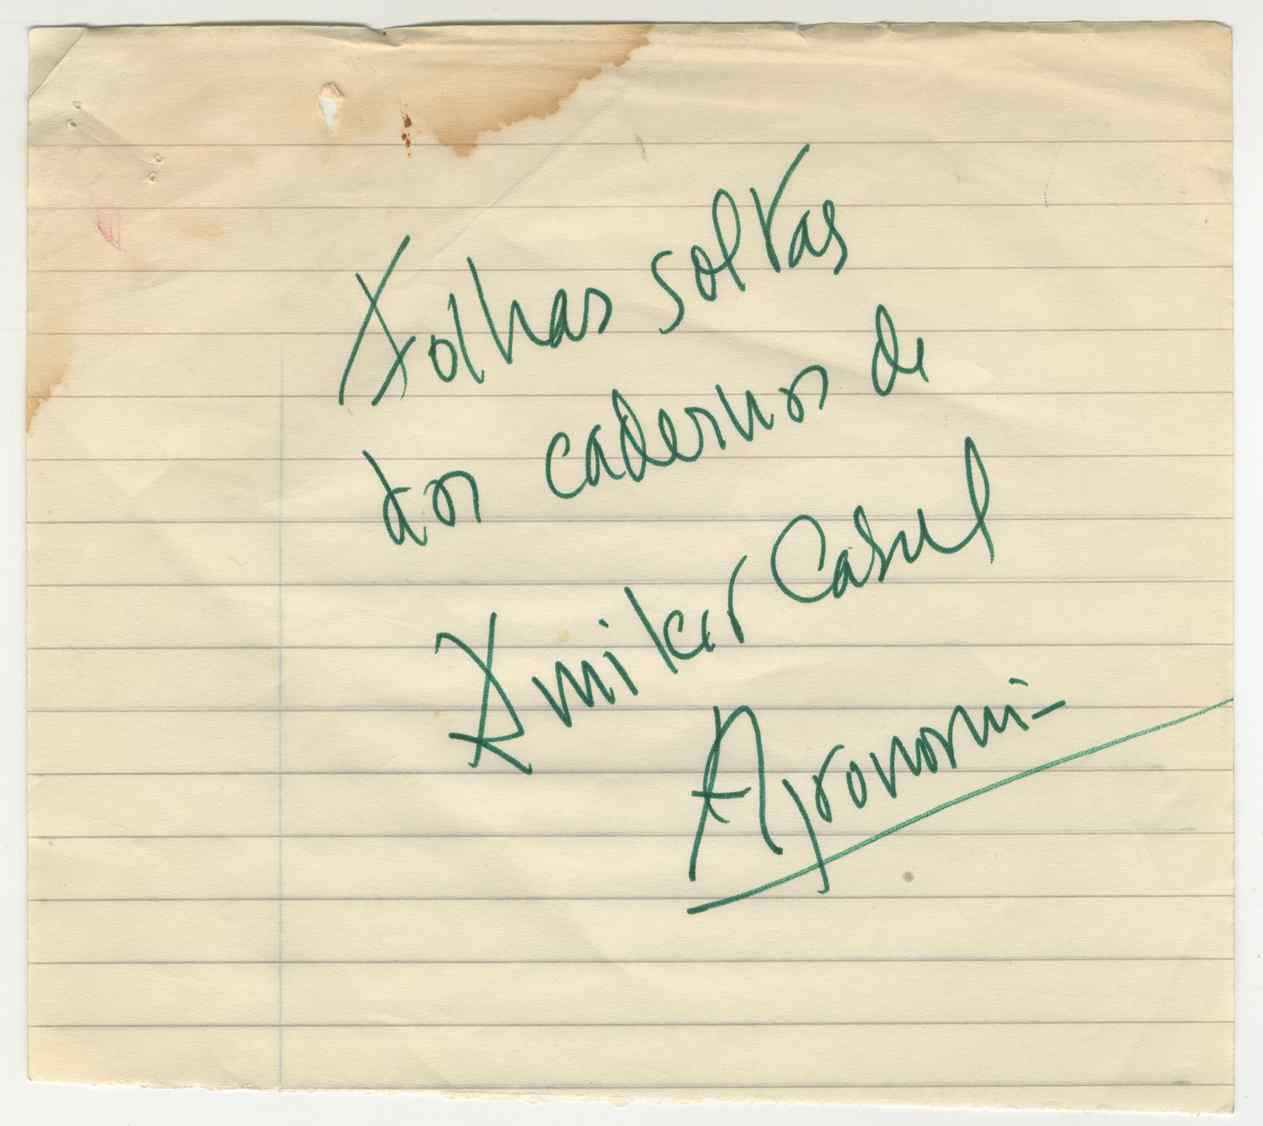 Folhas soltas
dos cadernos de
Amilcar Cabral
Agronomi-